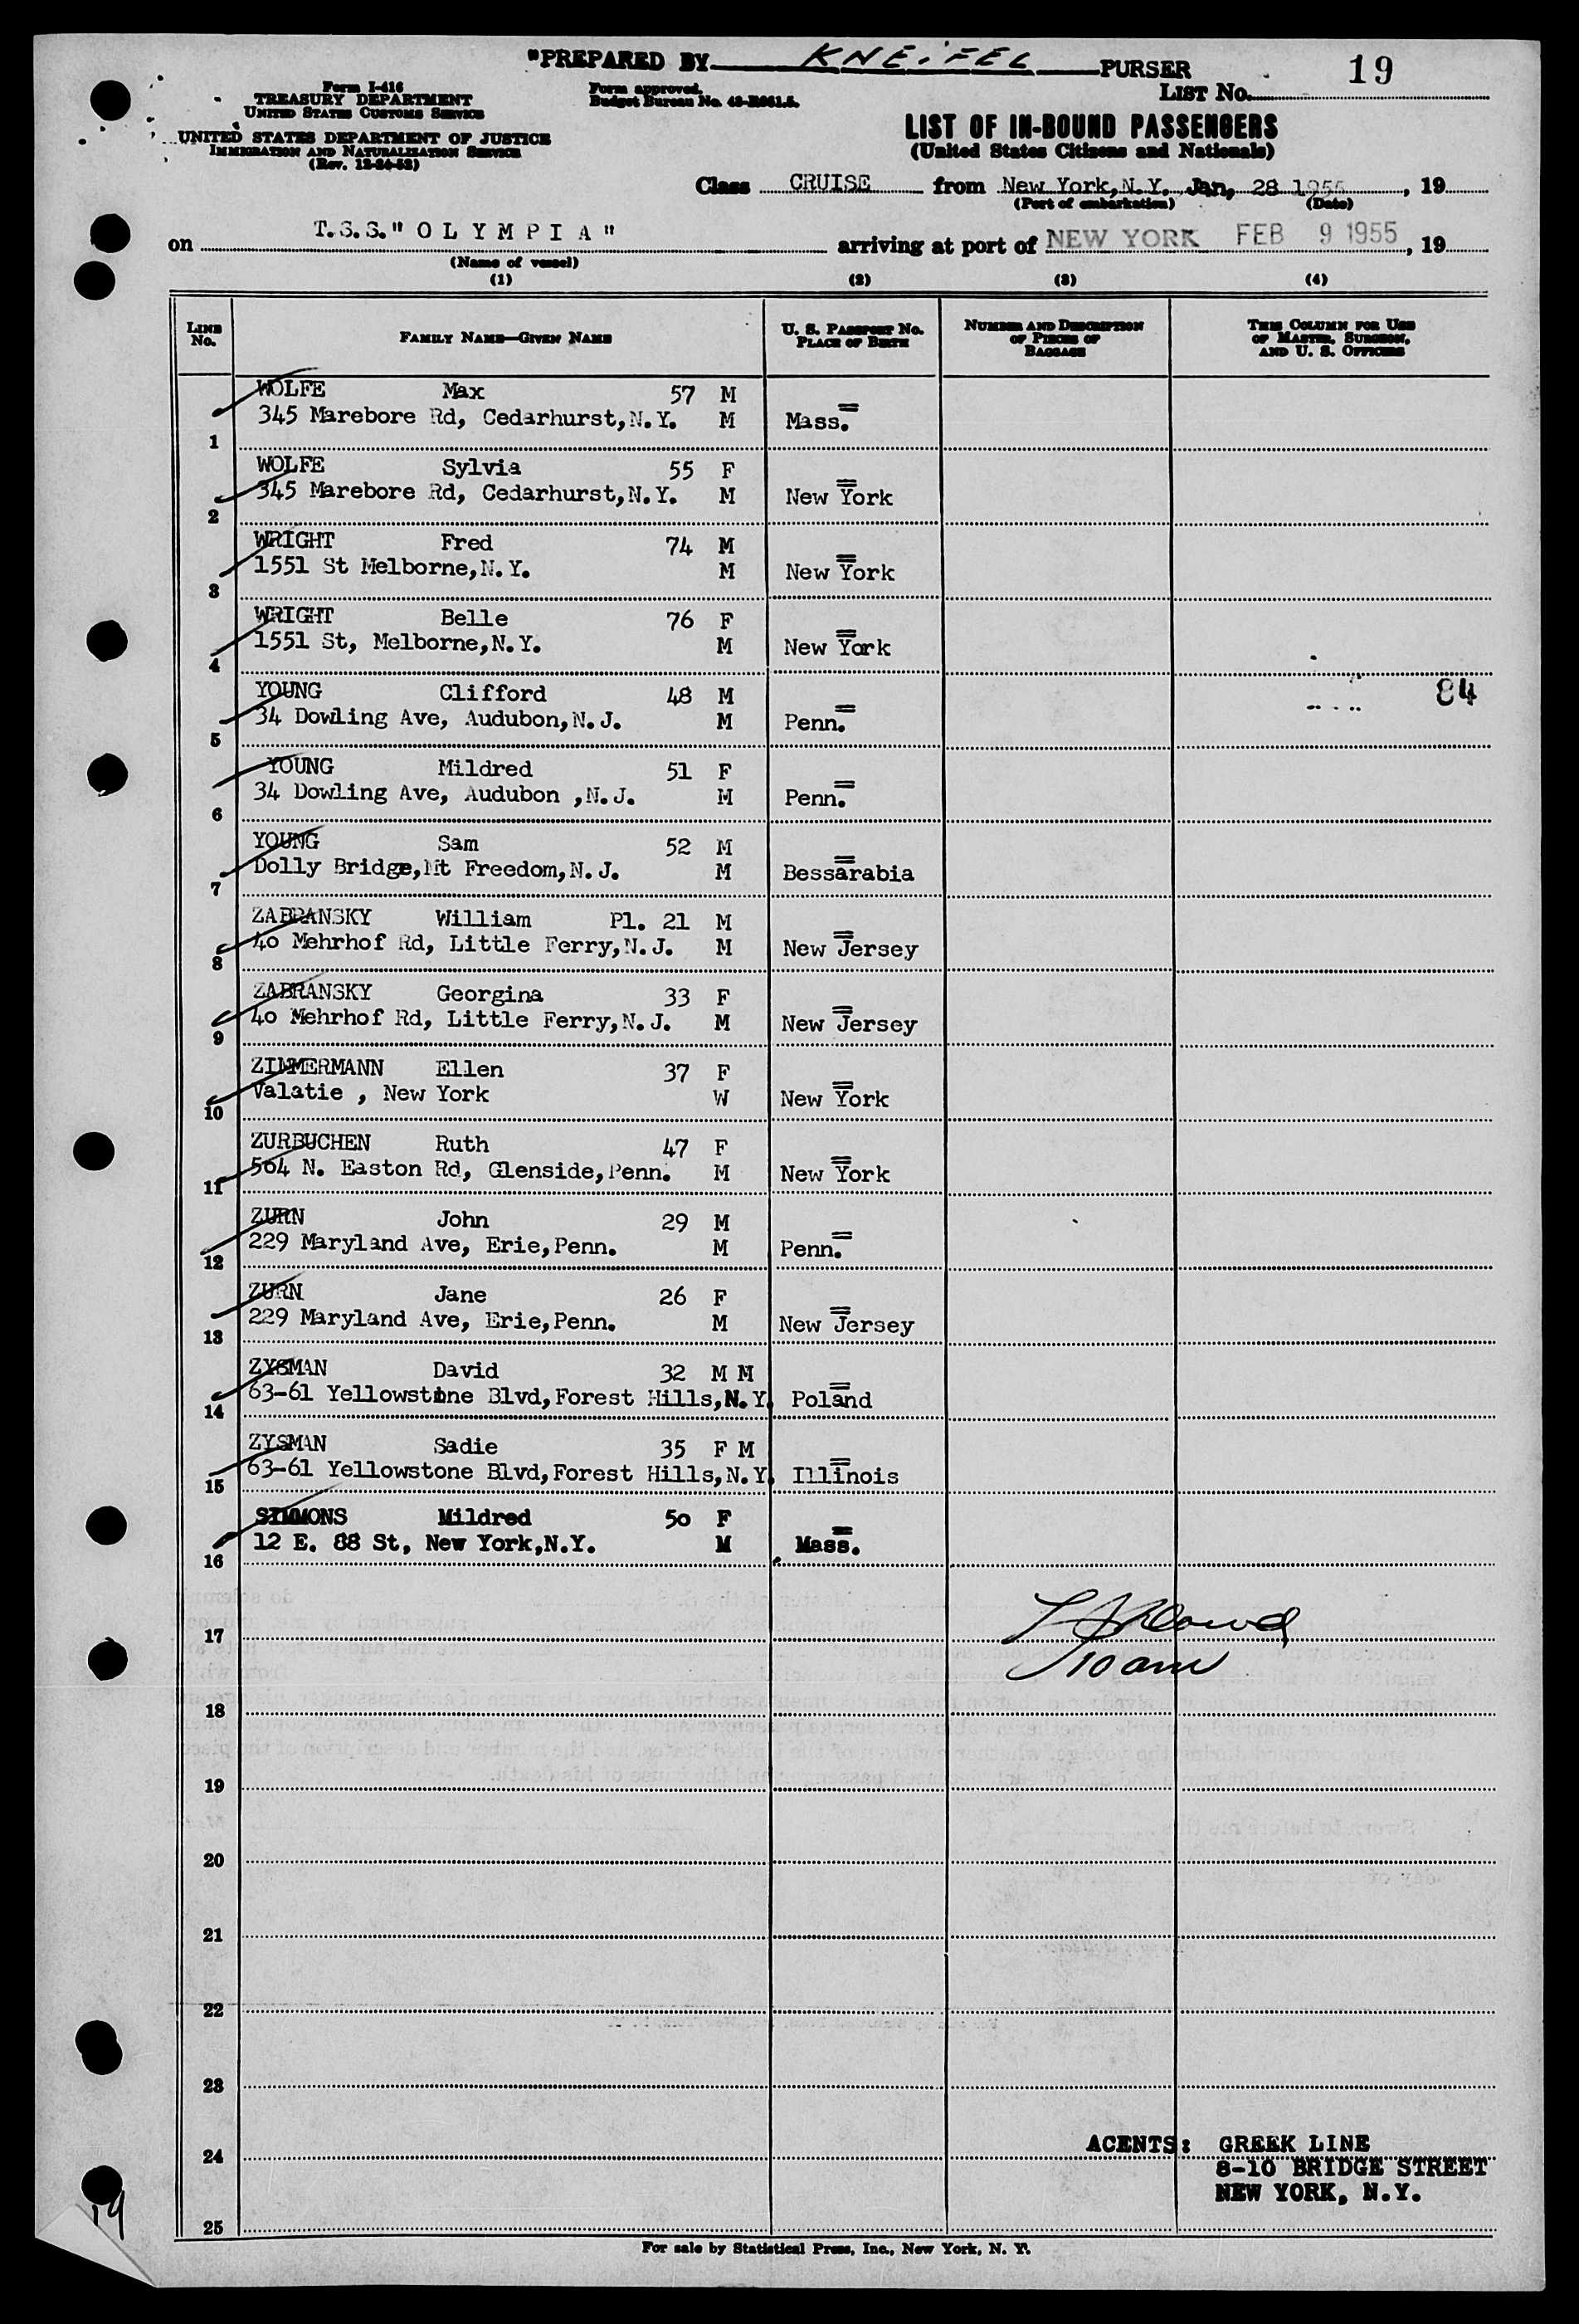 "PREPARED BY KNEIFEL PURSER
19
LIST No.
Form I-416
TREASURY DEPARTMENT
UNITED STATES CUSTOMS SERVICE
UNITED STATES DEPARTMENT OF JUSTICE
IMMIGRATION AND NATURALIZATION SERVICE
(Rev. 12-24-52)
Form approved.
Budget Bureau No. 43-R061.5.
LIST OF IN-BOUND PASSENGERS
(United States Citizens and Nationals)
Class CRUISE from New York, N.Y. Jan, 28 1955, 19
(Port of embarkation) (Date)
on T.S.S." O L Y M P I A " arriving at port of NEW YORK FEB 9 1955, 19
(Name of vessel)
(1) (2) (3) (4)
LINE No. FAMILY NAME—GIVEN NAME U. S. PASSPORT No. PLACE OF BIRTH NUMBER AND DESCRIPTION OF PIECES OF BAGGAGE THIS COLUMN FOR USE OF MASTER, SURGEON, AND U. S. OFFICERS
WOLFE Max 57 M
345 Marebore Rd, Cedarhurst,N.Y. M Mass.
1
WOLFE Sylvia 55 F
345 Marebore Rd, Cedarhurst,N.Y. M New York
2
WRIGHT Fred 74 M
1551 St Melborne,N.Y. M New York
3
WRIGHT Belle 76 F
1551 St, Melborne,N.Y. M New York
4
YOUNG Clifford 48 M 84
34 Dowling Ave, Audubon,N.J. M Penn.
5
YOUNG Mildred 51 F
34 Dowling Ave, Audubon ,N.J. M Penn.
6
YOUNG Sam 52 M
Dolly Bridge,Mt Freedom,N.J. M Bessarabia
7
ZABRANSKY William Pl. 21 M
40 Mehrhof Rd, Little Ferry,N.J. M New Jersey
8
ZABRANSKY Georgina 33 F
40 Mehrhof Rd, Little Ferry,N.J. M New Jersey
9
ZIMMERMANN Ellen 37 F
Valatie , New York W New York
10
ZURBUCHEN Ruth 47 F
504 N. Easton Rd, Glenside,Penn. M New York
11
ZURN John 29 M
229 Maryland Ave, Erie,Penn. M Penn.
12
ZURN Jane 26 F
229 Maryland Ave, Erie,Penn. M New Jersey
13
ZYSMAN David 32 M M
63-61 Yellowstone Blvd,Forest Hills,N.Y. Poland
14
ZYSMAN Sadie 35 F M
63-61 Yellowstone Blvd,Forest Hills,N.Y. Illinois
15
SIMMONS Mildred 50 F
12 E. 88 St, New York,N.Y. M Mass.
16
17
10 am
18
19
20
21
22
23
24
AGENTS: GREEK LINE
8-10 BRIDGE STREET
NEW YORK, N.Y.
25
19
For sale by Statistical Press, Inc., New York, N. Y.